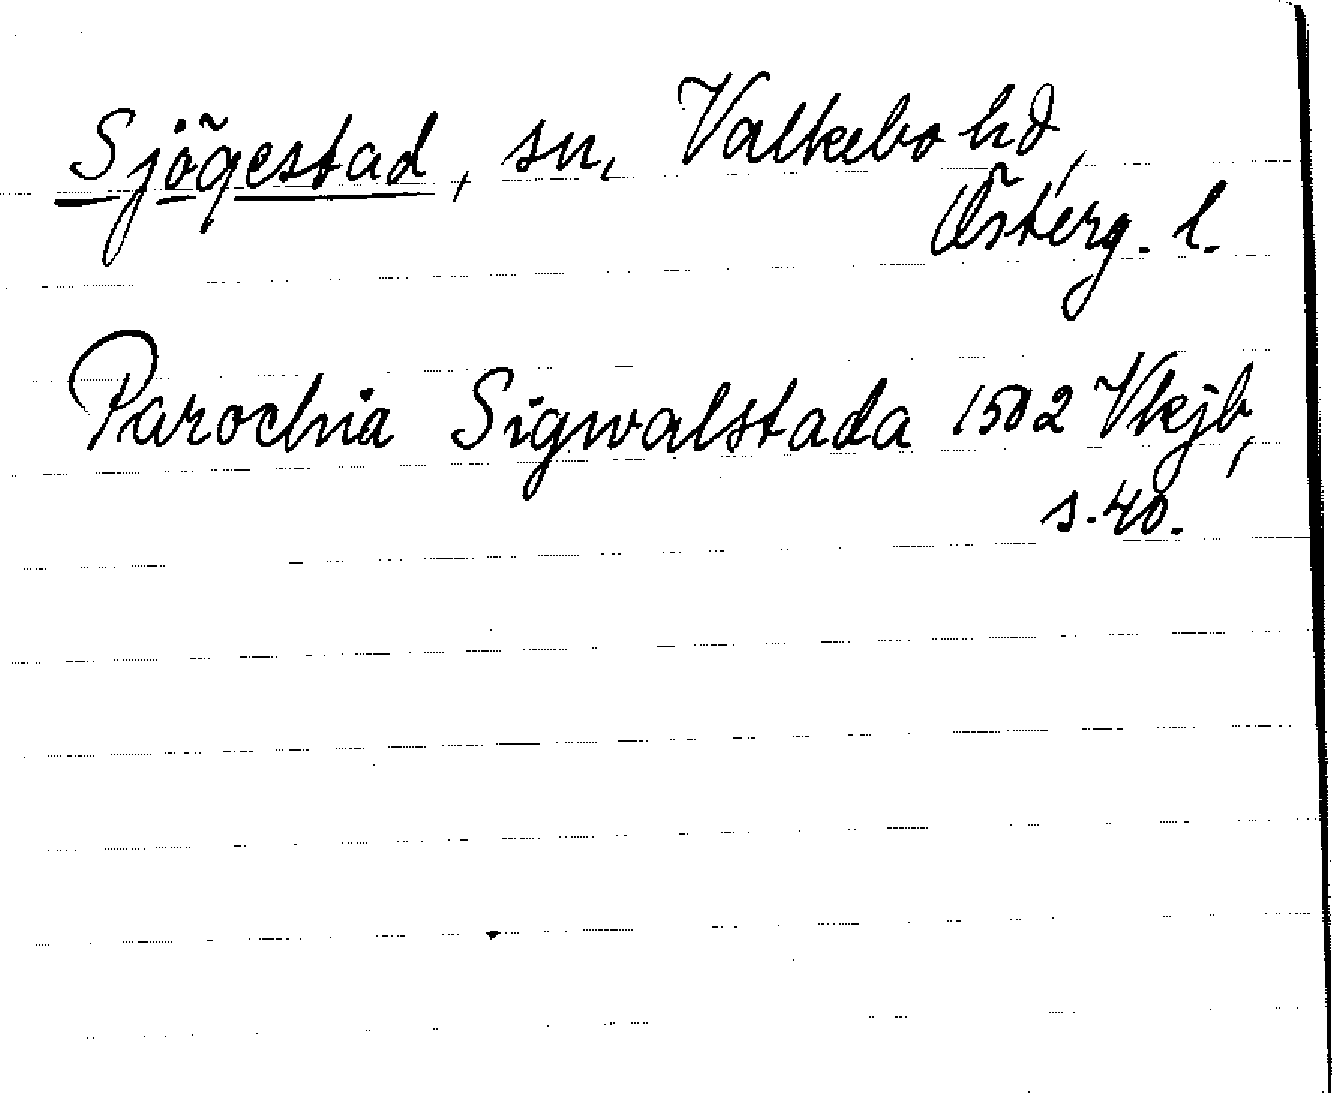 Sjögestad, sn, Valkebo hd,
Österg. l.
Parochia Sigwalstada 1502 Vkjb,
s. 40.